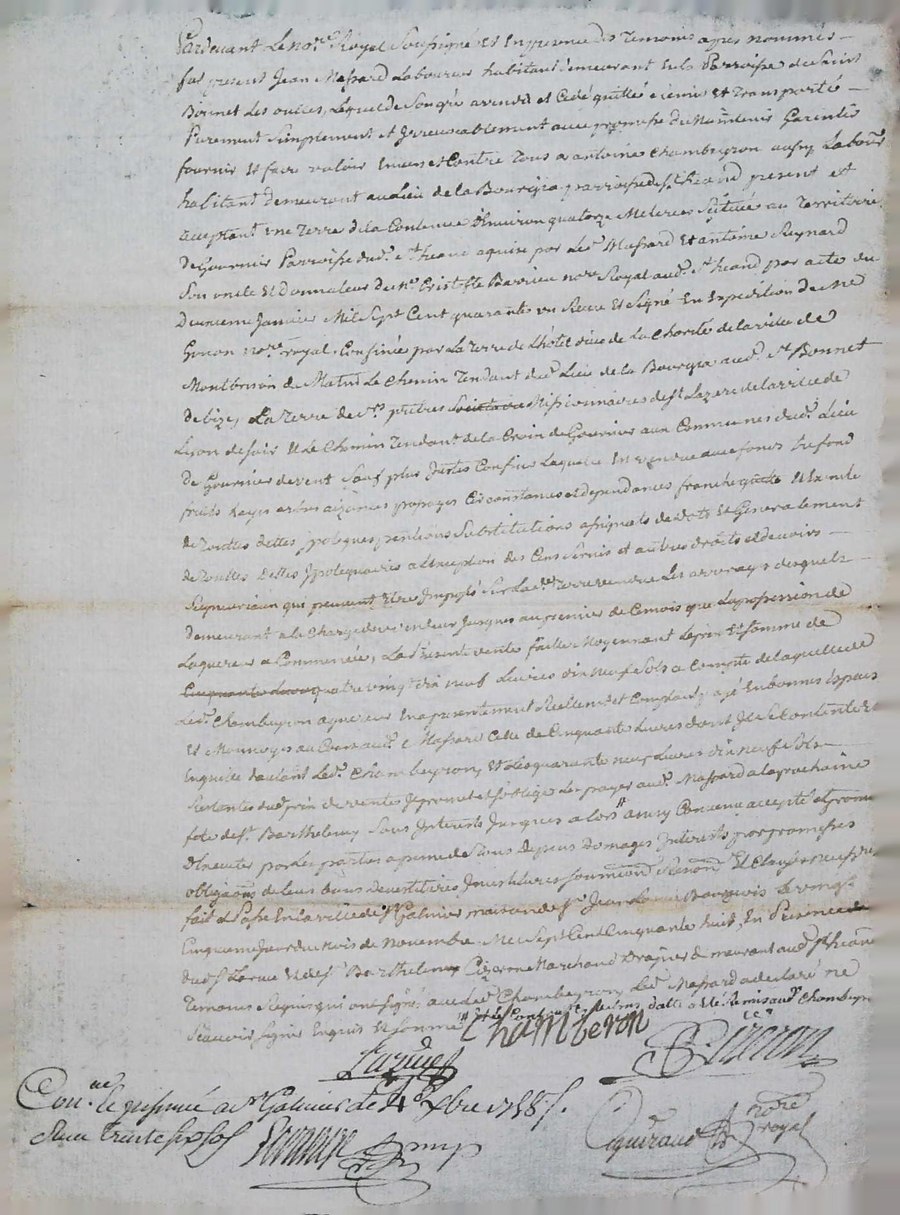 Pardevant Le no.re Royal Soussigné Et En presence des Temoins apres nommés
fut present Jean Massard Laboureur habitant demeurant En la Parroisse de Saint
Bonnet Les oulles, Lequel de son gré a vendu et Cedé quitté remis et Transporté
Purement Simplement et Irrevocablement avec promesse de Maintenir Garentir
fournir Et faire valoir Envers et Contre Tous a antoine Chambeyron aussy Labour
habitant demeurant au Lieu de la Bourgia parroisse de St heand present et
acceptant une Terre de la Contenue d'Environ quatorze Meterées Scituée au Territoire
de Gournier Parroisse dud. St heand aquise par Led. Massard Et antoine Reynard
Son oncle Et Donnateur de Barrieu no.re Royal aud. St heand par acte du
Janvier Mil Sept Cent quarante un Receu Et Signé En Expedition de Me
Gonon no.re royal, Confinée par La Terre de L'hôtel dieu de La Charité de la ville de
Montbrison de Matin, Le Chemin Tendant du Lieu de la Bourgia aud. St Bonnet
de bize, La Terre de prêtres Missionnaires de St Lazare de la ville de
Lyon de soir Et Le Chemin Tendant de la Croix de Gournier aux Communes dud. Lieu
de Gournier de vent Sauf plus Justes Confins Laquelle Terre vendue avec fonds Trefond
fruits aizances passages Circonstances et dependances franche quitte Et Exempte
de Toutes dettes ypoteques pentions Substitutions de dots Et Generalement
de Toutes Dettes Ypotequaires a L'exeption des Cens Servis et autres droits et devoirs
Seigneuriaux qui peuvent Etre Imposés Sur Lad. Terre vendue Les arrerages desquels
demeurant a la Charge du vendeur Jusques au premier de Ce mois que La possession de
Laquereur a Commencée, La presente vente faitte Moyennant Le prix Et Somme de
quatre vingt dix neuf Livres dix neuf Sols a Compte de laquelle
Led. Chambeyron aquereur En a presentement Reellement et Comptant payé En bonnes Especes
Et Monnoyes au Cours aud. Massard Celle de Cinquante Livres dont Il se Contente Et
En quitte d'autant Led. Chambeyron, Et Les quarante neuf Livres dix neuf Sols
Restantes dud. prix de vente Il promet et s'oblige Les payer aud. Massard a la prochaine
fete de St Barthelemy Sous Interets Jusques a Lors ainsy Convenu accepté et promis
obs par Les parties a peine de Tous Depens Domages Interests par promesses
obligaons de Leurs biens devestitures Investitures Soumissions Renonons Et Clauses
fait Et Passé En la ville de St Galmier maison de Sr Jean Bourgeois Le vingt
Cinquieme Jour du mois de Novembre Mil Sept Cent Cinquante huit, En Presence
dud. Sr Larue Et de Sr Barthelemy Marchand Drapier demeurant aud. St heand
Temoins Requis qui ont signé avec Led. Chambeyron Led. Massard a declaré ne
Scavoir Signer Enquis Et Sommé
Chamberon
Larue
Con.lé le present a St Galmier le 4 Xbre 1758
Receu trente six sols
no.re
royal